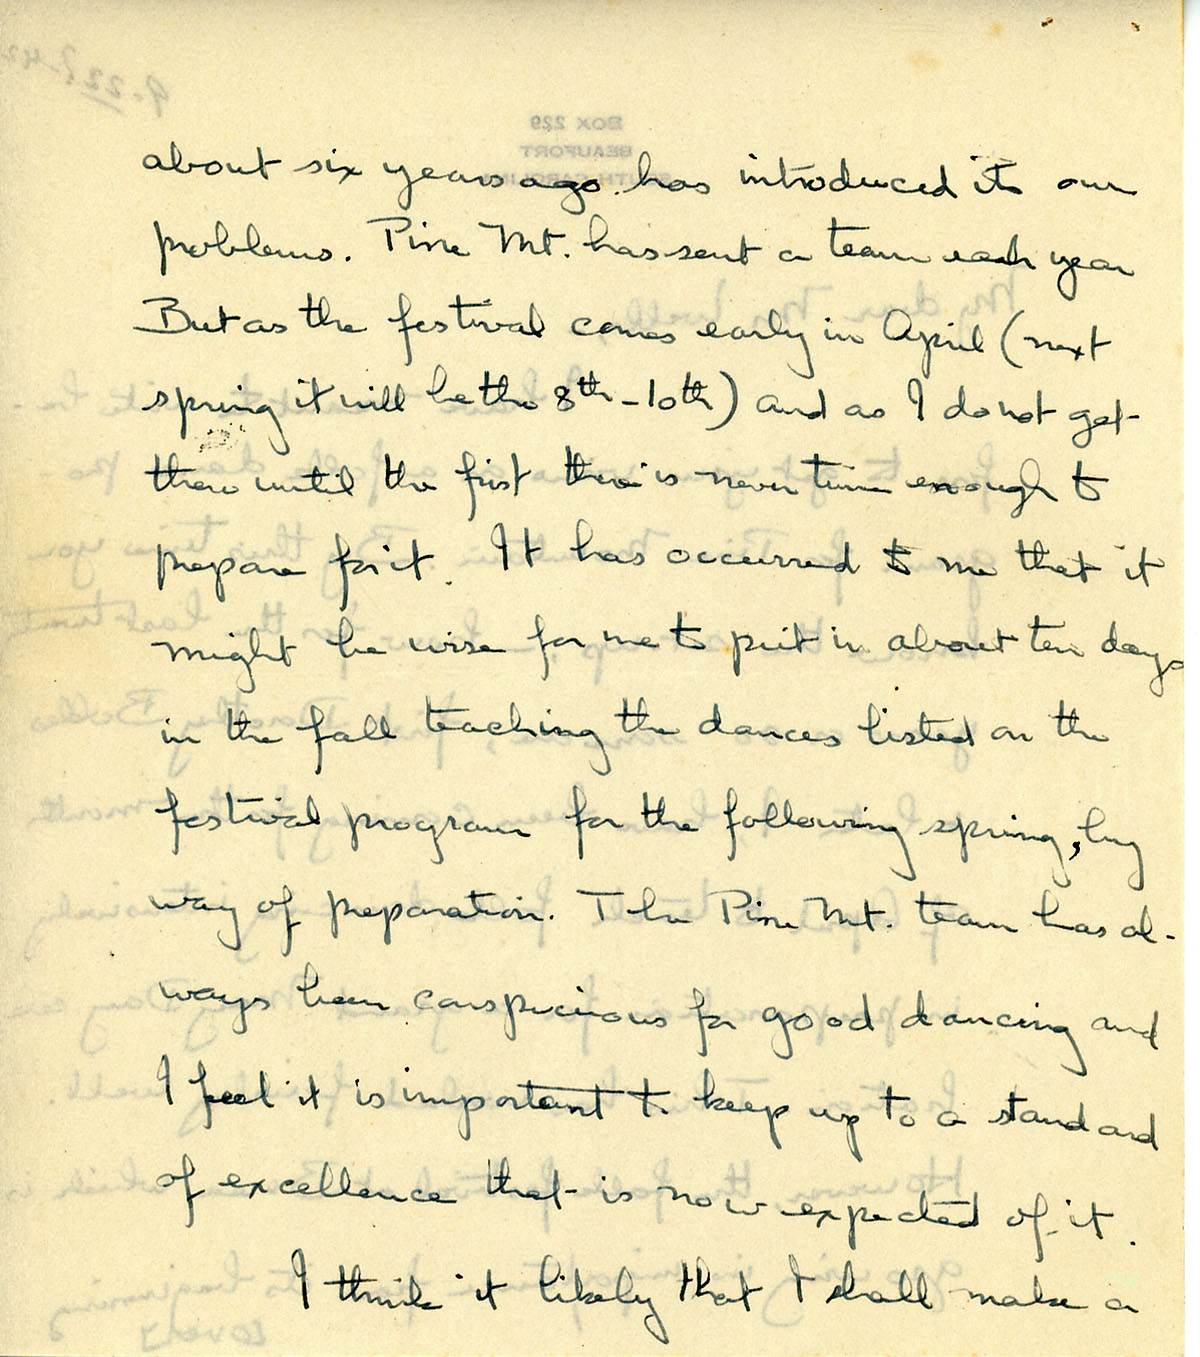 about six years ago has introduced its own
problems. Pine Mt. has sent a team each year
But as the festival comes early in April (next
spring it will be the 8th - 10th) and as I do not get
there until the first there is never time enough to
prepare for it. It has occurred to me that it
might be wise for me to put in about ten days
in the fall teaching the dances listed on the
festival program for the following spring, by
way of preparation. The Pine Mt. team has al-
ways been conspicuous for good dancing and
I feel it is important to keep up to a standard
of excellence that is now expected of it.
I think it likely that I shall make a